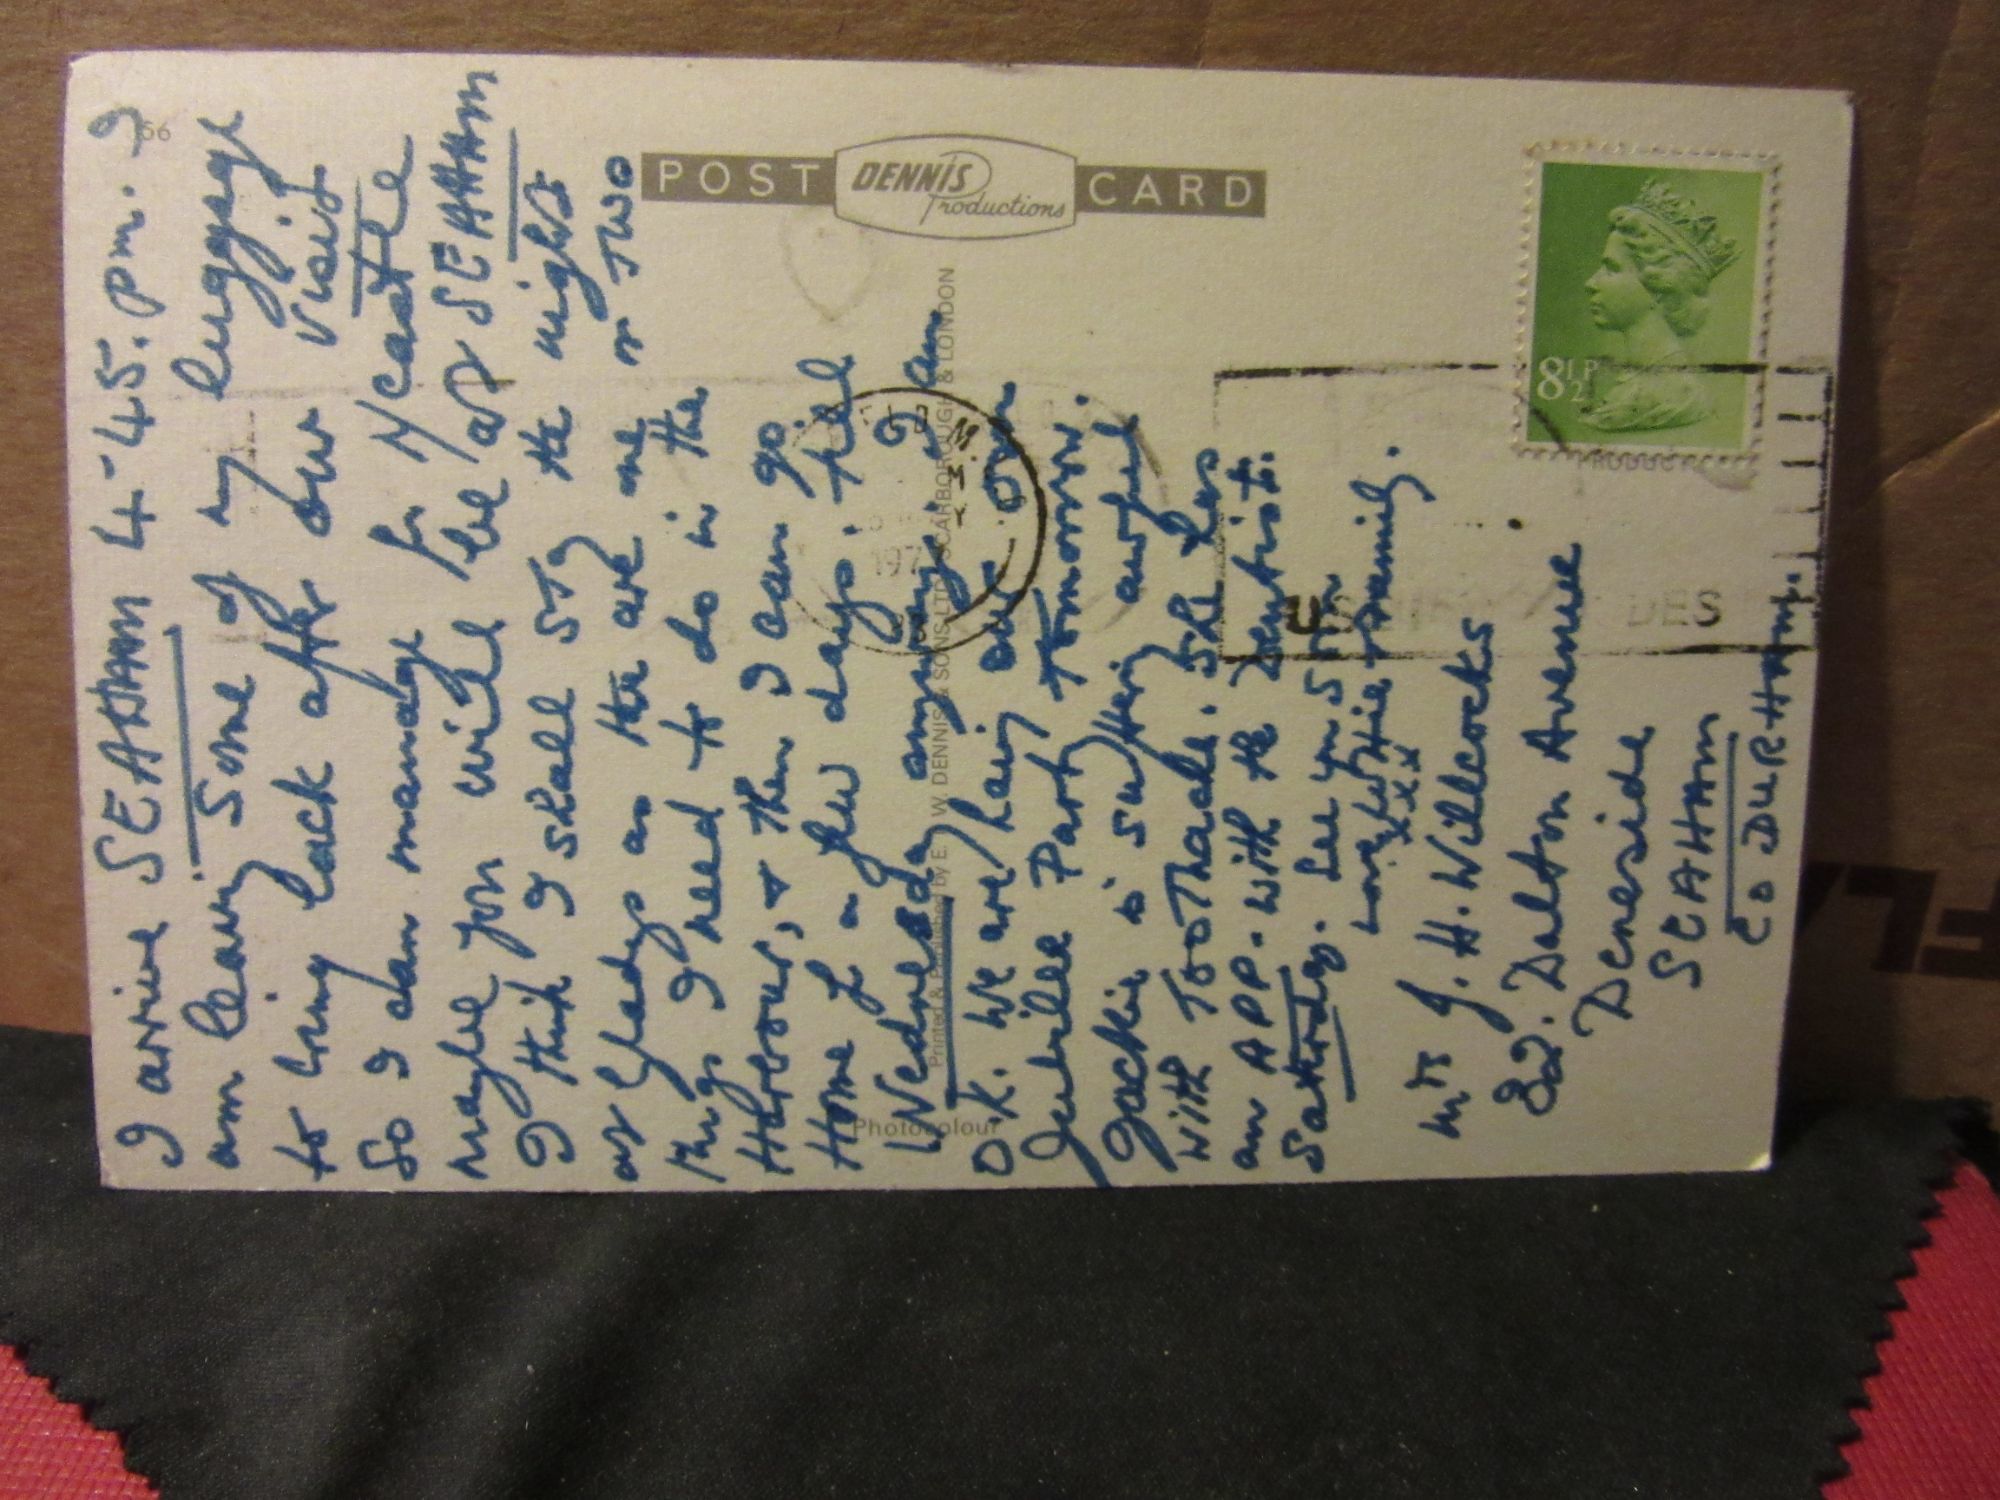 I arrive SEAHAM 4-45. pm. I
am leaving some of my luggage
to bring back after our visit
So I can manage for N/castle
maybe you will be at SEAHAM
I think I shall stay the night
at Gladys as there are one or TWO
things I need to do in the
Harbour, & then I can go
Home for a few days, till
Wednesday anyway. I am
O.K. We are having our own
Jubilee Party tommorrow.
Jackie is suffering awful
with TOOTHache. She has
an APP. with the Dentist.
Saturday. See you soon
Love Winnie & Family.
xxx
Mrs J. H. Willcocks
82. Dalton Avenue
Deneside
SEAHAM
CO DURHAM.
56
POST CARD
DENNIS
Productions
Photocolour
Printed & Published by E. T. W. DENNIS & SONS LTD SCARBOROUGH & LONDON
8½P
PRODUC
197
DES